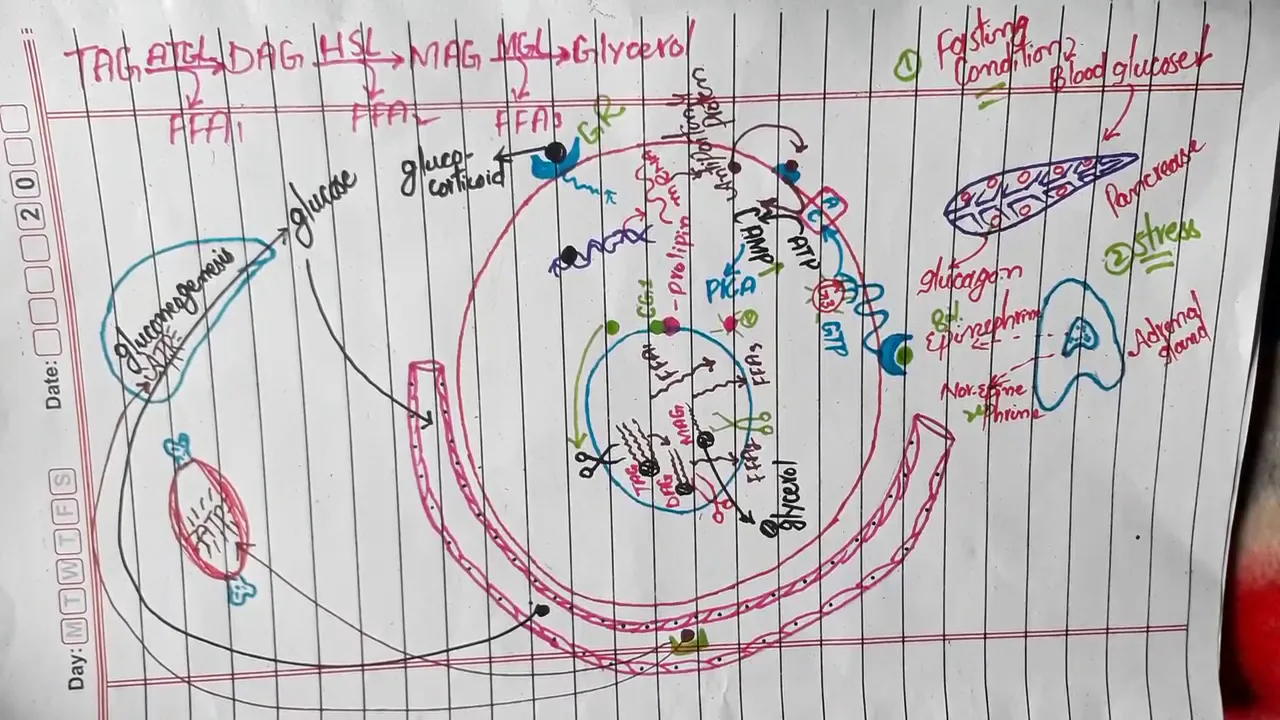 TAG ATGL DAG HSL MAG MGL Glycerol
FFA1 FFA2 FFA3
① Fasting
Condition 2
Blood glucose↓
Pancrease
glucagon
② stress
Epinephrine
Nor-Epine
phrine
Adrenal
gland
gluco-
corticoid
GR
Antilipolytic
ATP
CAMP
PKA
AC
GTP
prolipin
CGI
FFA1
FFA3
FFA2
MAG
TAG
DAG
glycerol
glucose
gluconeogenesis
ATP
ATP
Date: 2 0
Day: M T W T F S